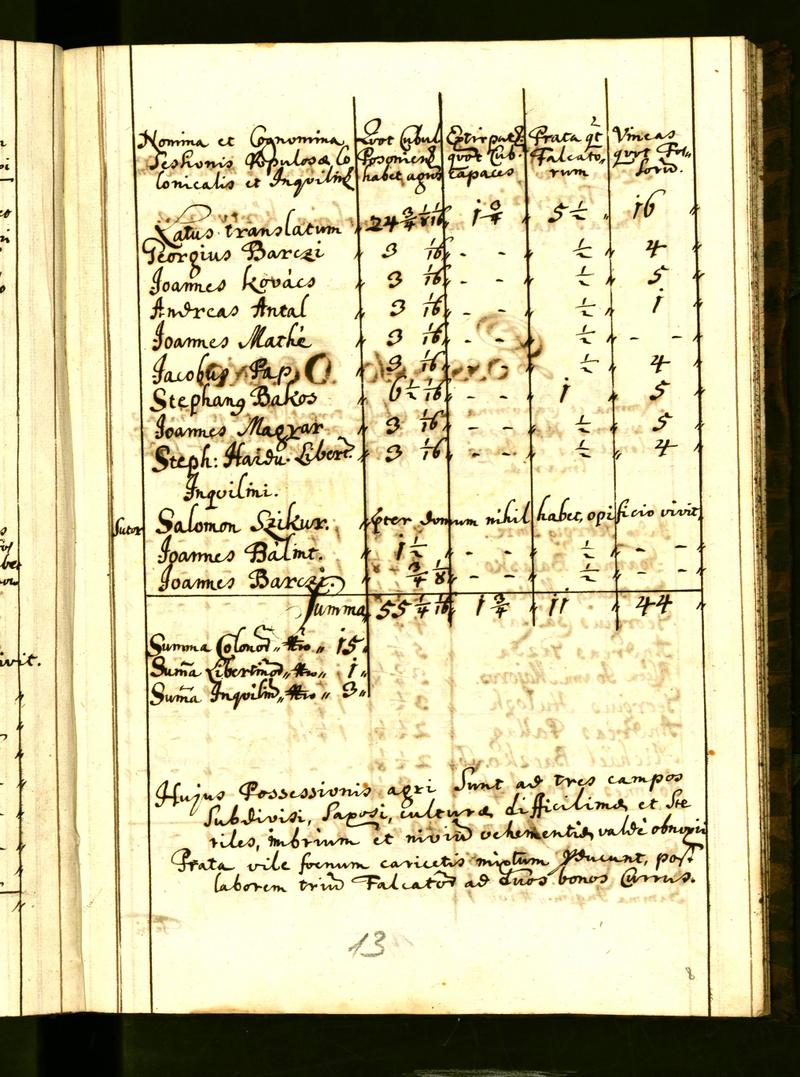 Nomina et Cognomina Quot Cubul Extirpat Prata qt Vineas
Sessionis Populosæ Co Posonien quot Cub. Falcato, quot Fos
lonicalis et Inquilin habet agros capaces rum sorū.
Latus translatum " 24 3/4 1/8 1/16 " 1 3/4 " 5 1/2 " 16 "
Georgius Barczi " 3 1/16 " - - " 1/2 " 4 "
Joannes Kovács " 3 1/16 " - - " 1/2 " 5 "
Andreas Antal " 3 1/16 " - - " 1/2 " 1 "
Joannes Mathé " 3 1/16 " - - " 1/2 " - - "
Jacobus Pap " 3 1/16 " 1/2 " 4 "
Stephang Bakos 6 1/2 1/16 " - - " 1 5 "
Joannes Magyar " 3 1/16 " - - " 1/2 " 5 "
Steph: Haidu. Libert. " 3 1/16 " - - " 1/2 " 4 "
Inquilini.
Sutor Salomon Szikur. " pter domum nihil habet, opificio vivit,
Joannes Bálint. " 1 1/2 " - - " 1/2 " - - "
Joannes Barczi. " - 3/4 1/8 " - - " 1/2 " - - "
Summa 55 1/4 1/16 " 1 3/4 " 11 " 44 "
Summa Colonor " Nro " 15 "
Suma Libertinor " Nro " 1 "
Suma Inquilin " Nro " 3 "
Hujus Possessionis agri Sunt ad tres campos
Subdivisi, Saxosi, culturæ difficilimæ et Ste
riles, imbrium et niviū vehementiæ valdè obnoxii
Prata vile foenum caricetis mixtum pducunt, post
laborem triū Falcator ad duos bonos Currus.
13
8